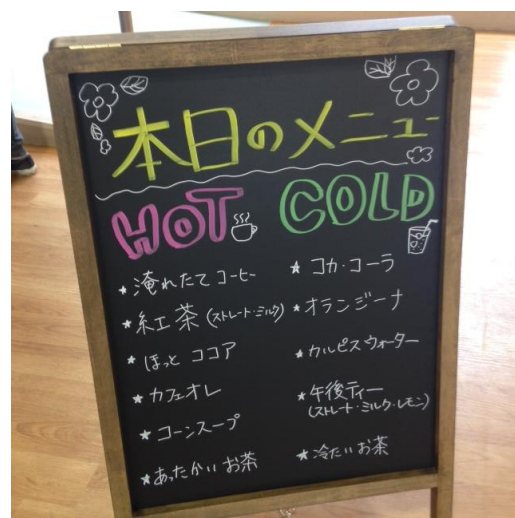 本日のメニュー
HOT
★淹れたてコーヒー
★紅茶(ストレート・ミルク)
★ほっとココア
★カフェオレ
★コーンスープ
★あったかいお茶
COLD
★コカ・コーラ
★オランジーナ
★カルピスウォーター
★午後ティー
(ストレート・ミルク・レモン)
★冷たいお茶